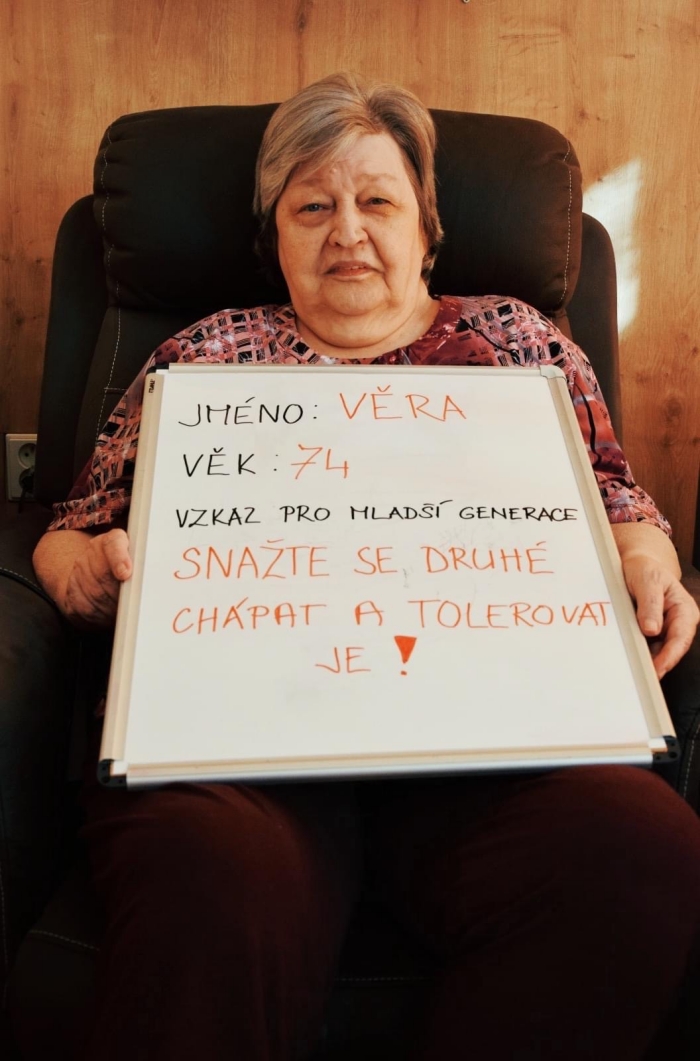 JMÉNO: VĚRA
VĚK: 74
VZKAZ PRO MLADŠÍ GENERACE
SNAŽTE SE DRUHÉ
CHÁPAT A TOLEROVAT
JE!